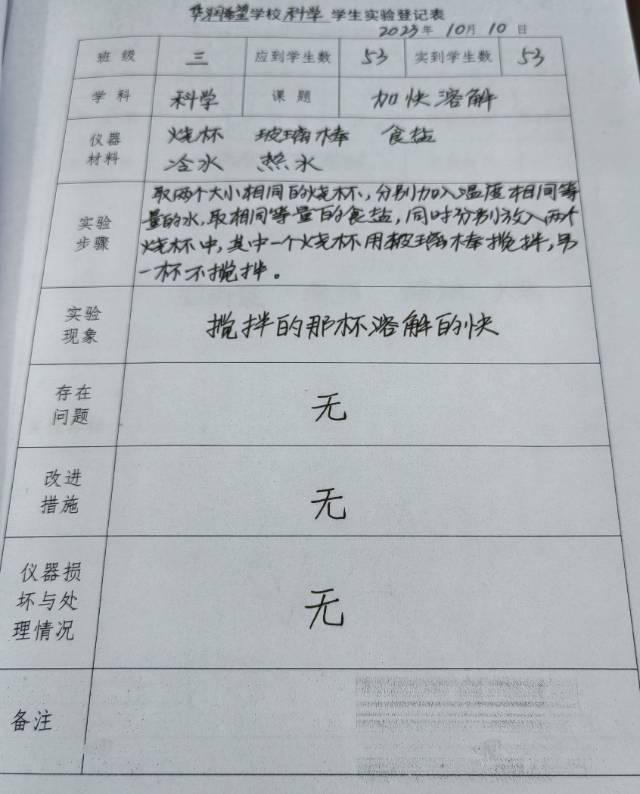 华润希望学校科学学生实验登记表
2023年10月10日
班级 三 应到学生数 53 实到学生数 53
学科 科学 课题 加快溶解
仪器材料 烧杯 玻璃棒 食盐
冷水 热水
实验步骤 取两个大小相同的烧杯,分别加入温度相同等
量的水,取相同等量的食盐,同时分别放入两个
烧杯中,其中一个烧杯用玻璃棒搅拌,另
一杯不搅拌。
实验现象 搅拌的那杯溶解的快
存在问题 无
改进措施 无
仪器损坏与处理情况 无
备注